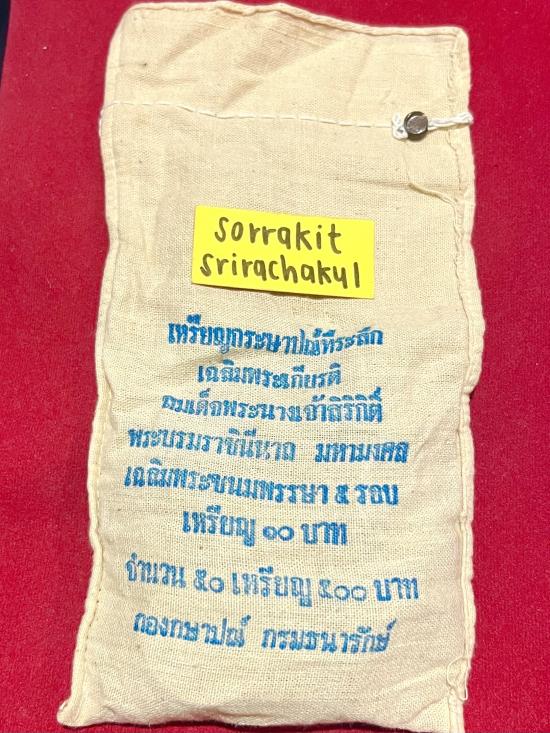 sorrakit
srirachakul
เหรียญกระษาปณ์ที่ระลึก
เฉลิมพระเกียรติ
สมเด็จพระนางเจ้าสิริกิติ์
พระบรมราชินีนาถ มหามงคล
เฉลิมพระชนมพรรษา ๕ รอบ
เหรียญ ๑๐ บาท
จำนวน ๕๐ เหรียญ ๕๐๐ บาท
กองกษาปณ์ กรมธนารักษ์